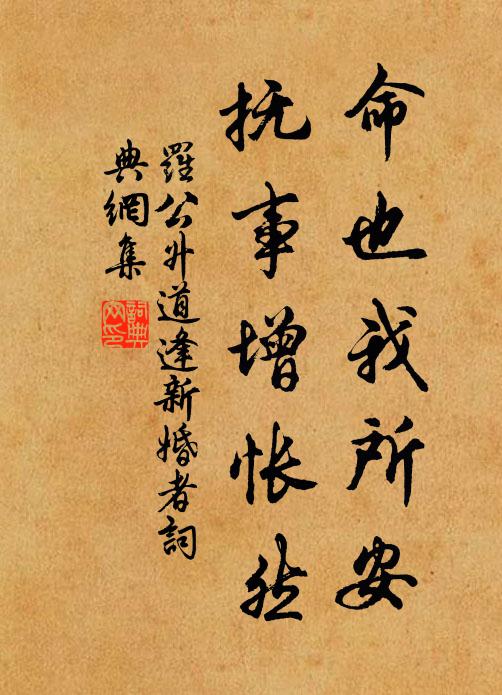 命也我所安
抚事增怅然
羅公升道逢新婚者詞
典網集
詞典
网印